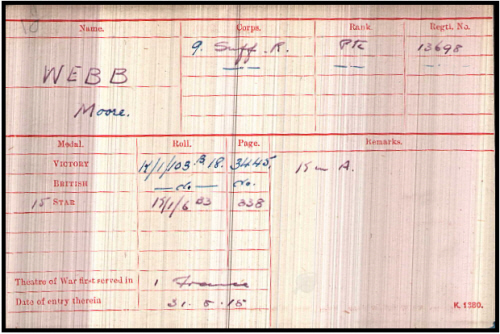 Name. Corps. Rank. Regtl. No.
9. Suff. R. Pte 13698
WEBB — " — — " — — " —
Moore.
Medal. Roll. Page. Remarks.
VICTORY K/1/103 B 18. 3445. K in A.
BRITISH — do — do.
15 STAR K/1/6 338
Theatre of War first served in 1 France
Date of entry therein 31. 8. 15
K. 1380.